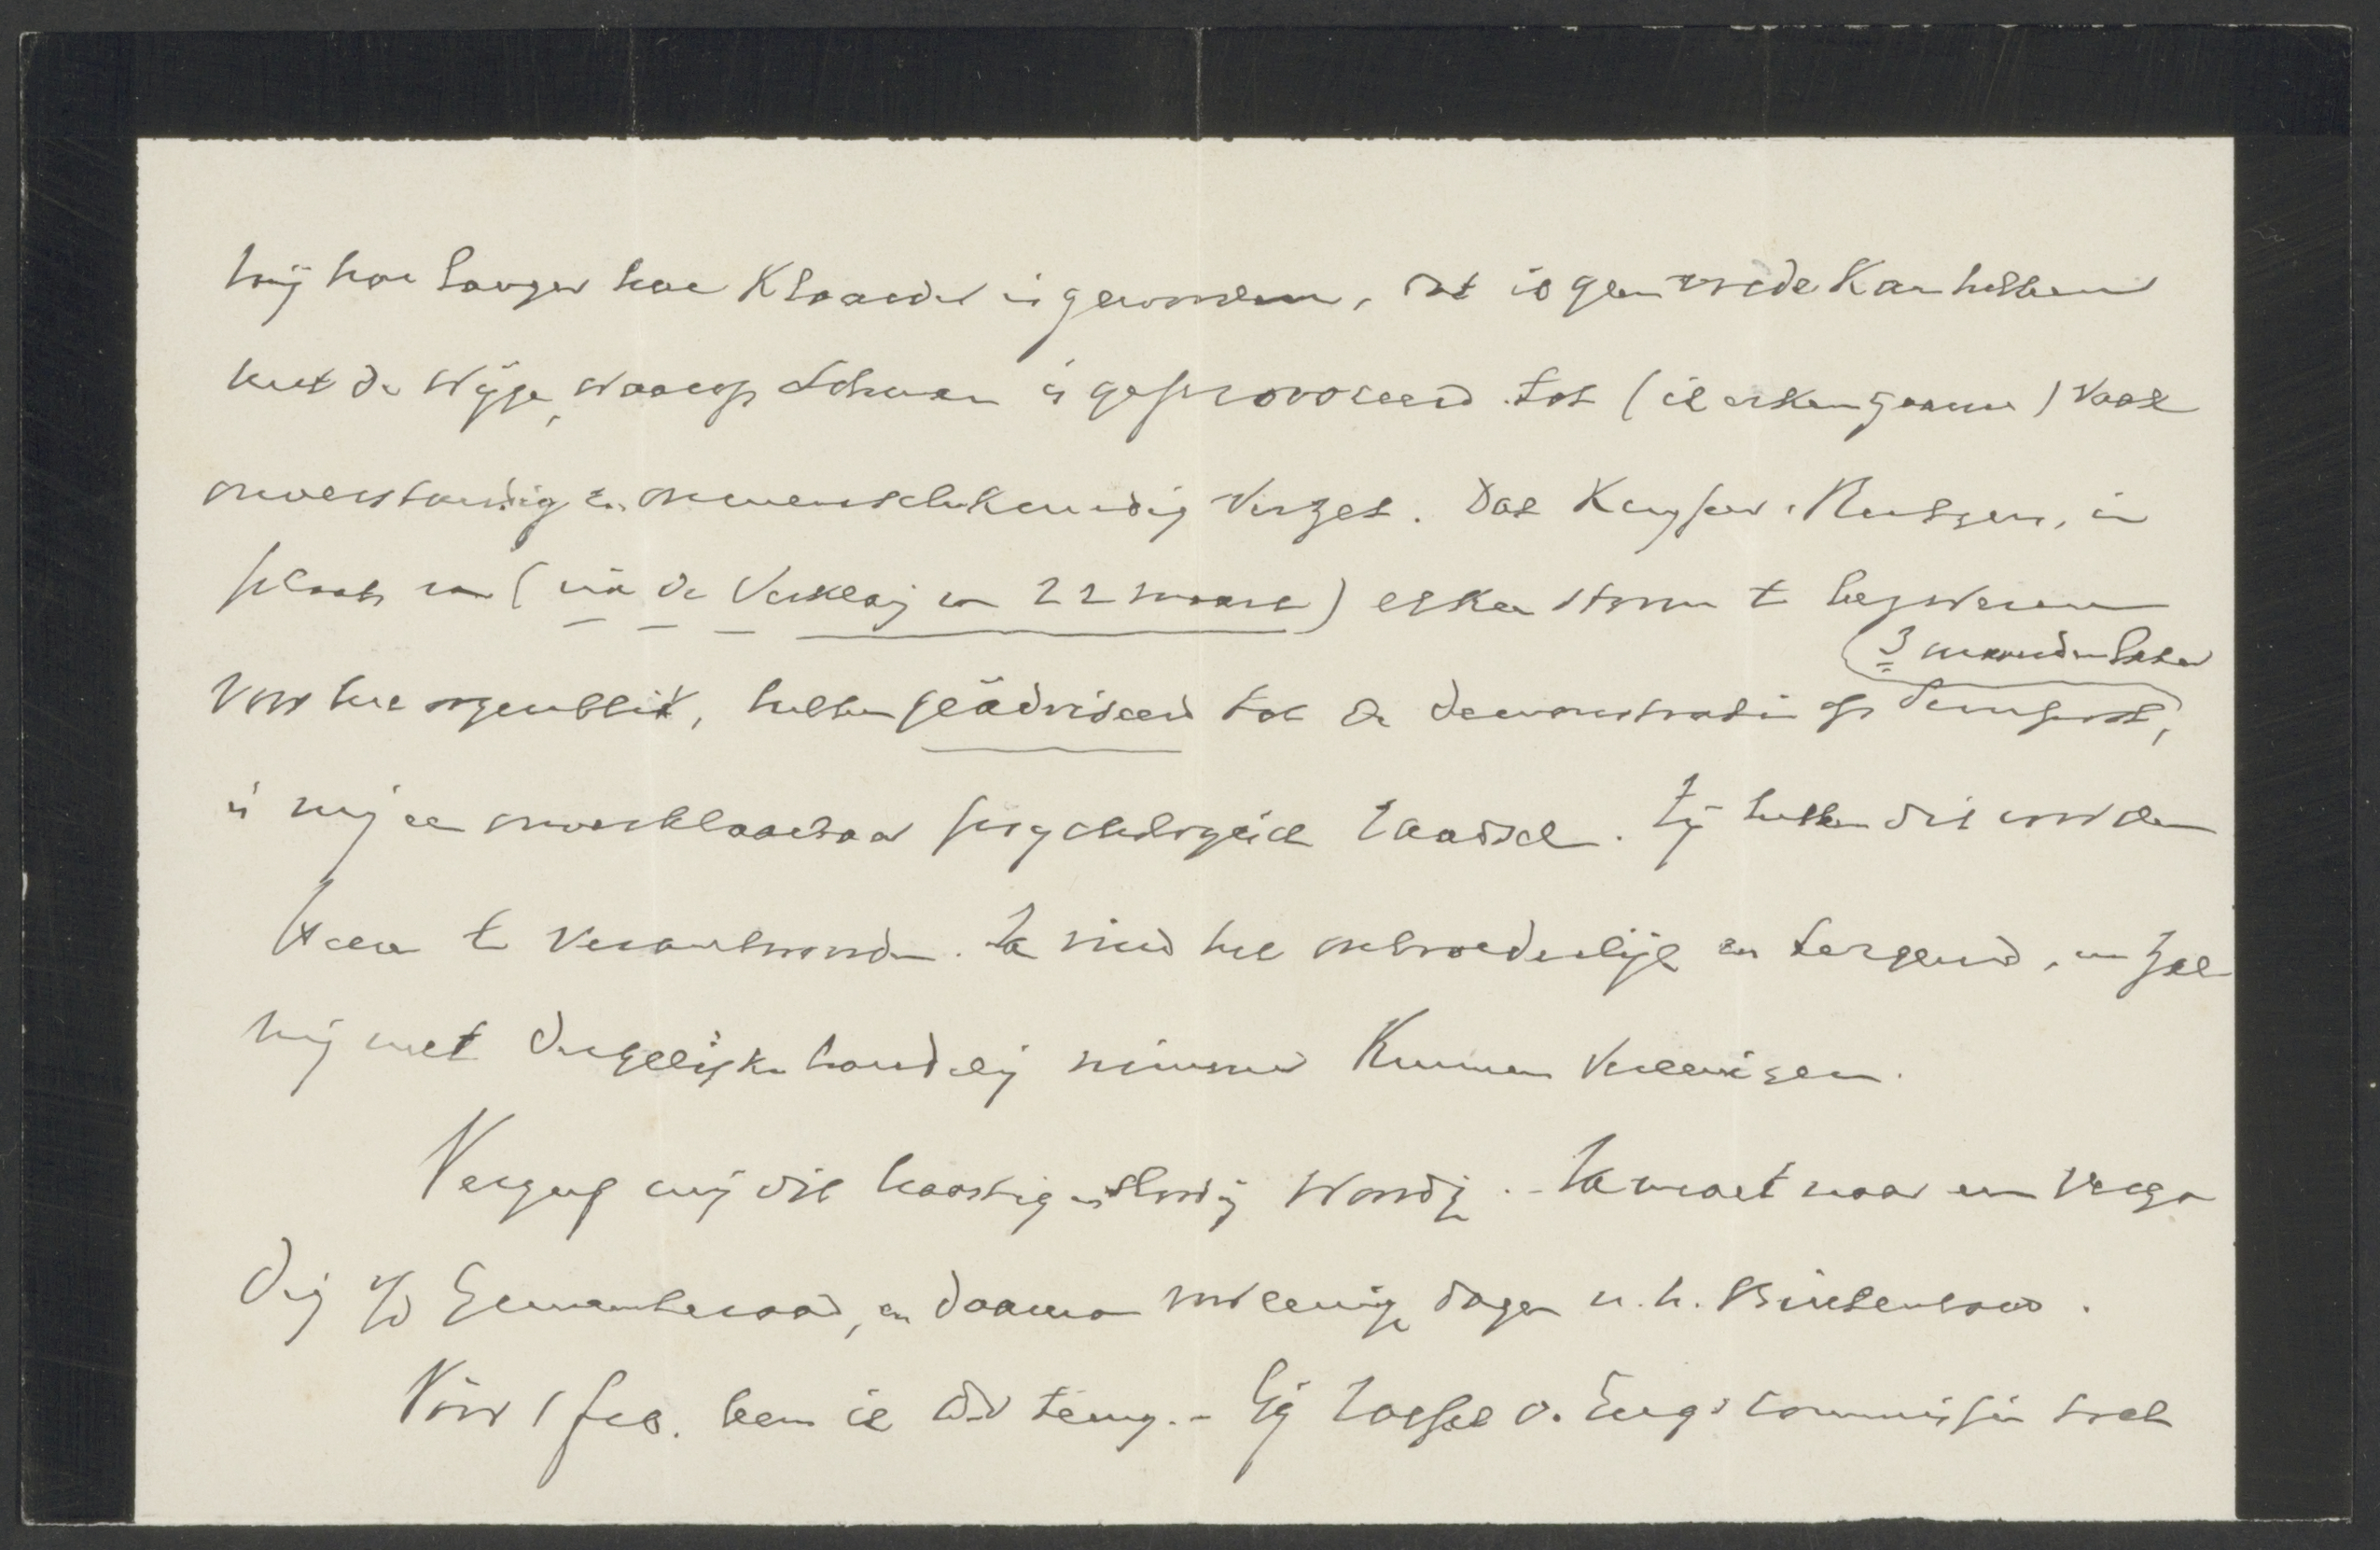 mij hoe langer hoe klaarder is geworden, dat ik geen vrede kan hebben
met de wijze, waarop Schman is geprovoceerd tot (ik erken gaarne) vaak
onverstandig en onmenschkundig verzet. Dat Kuyper & Rutgers, in
plaats van (via de Verklag van 22 maart) elken storm te bezweren
(3 maanden later
voor het oogenblik, hebben geädviseerd tot de demonstratie op,
is mij een onverklaarbaar psychologisch raadsel. Zij hebben dit voor den
Heere te verantwoorden. Ik vind het onbroederlijk en tergend, en zal
mij met dergelijke handelg nimmer kunnen vereenigen.
Vergeef mij dit haastig en slordig woordje. - Ik moet naar een verga
derg v/d Gemeenteraad, en daarna voor eenige dagen n. h. Buitenland.
Vóór 1 feb. ben ik D.V. terug. - Bij d. commissie trok